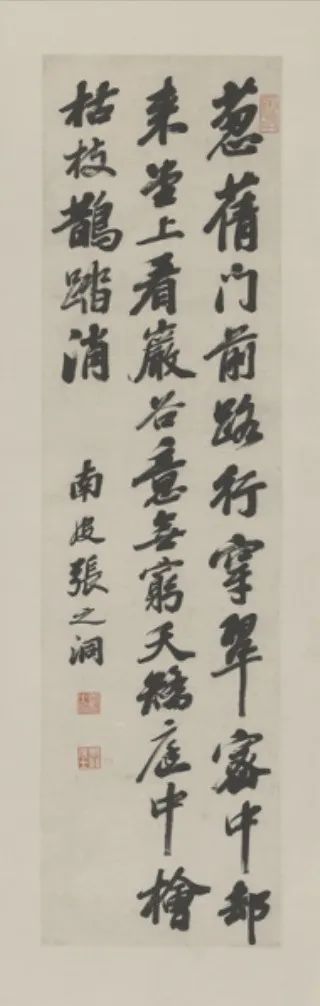 葱蒨門前路行穿翠密中却
来堂上看巖谷意無窮夭矯庭中檜
枯枝鵲踏消
南皮張之洞